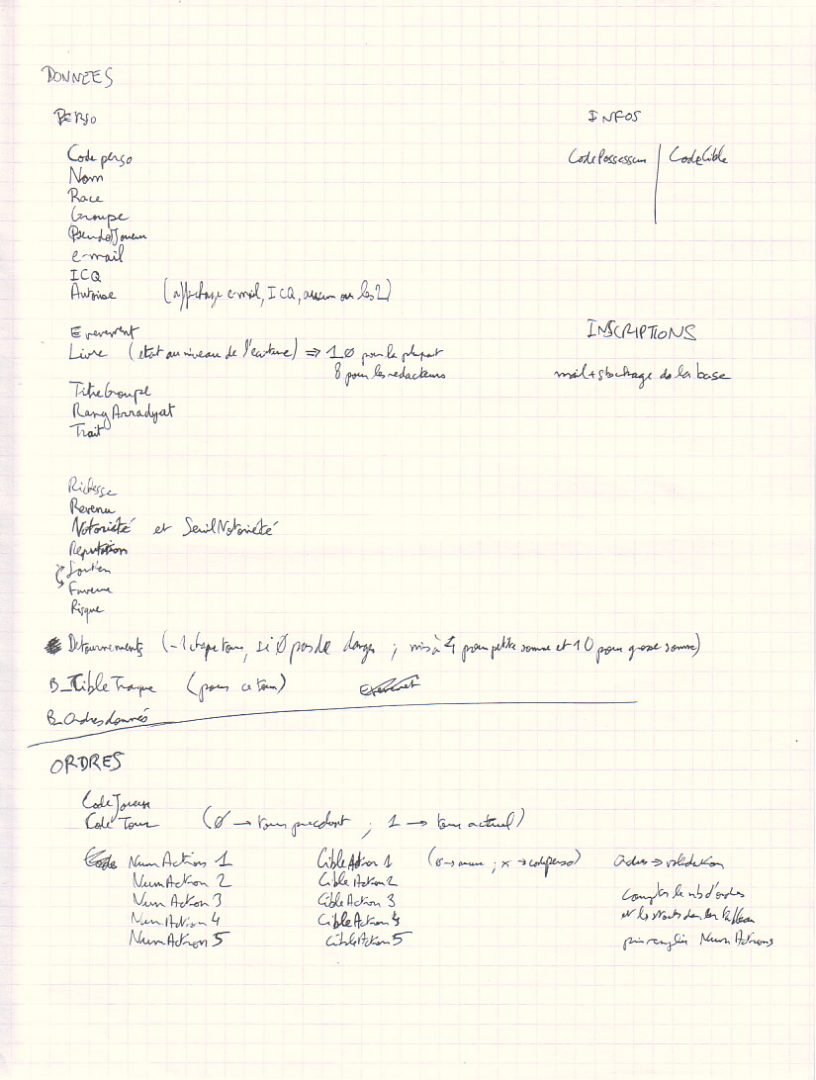 DONNEES
PERSO
Code perso
Nom
Race
Groupe
PseudoJoueur
e-mail
ICQ
Autorise (affichage e-mail, ICQ, aucun ou les 2)
Evenement
Livre (etat au niveau de l'ecriture) ⇒ 10 pour la plupart
8 pour les redacteurs
TitreGroupe
RangArradyat
Trait
Richesse
Revenu
Notoriété et SeuilNotoriété
Reputation
Soutien
Faveur
Risque
Detournements (-1 chaque tour, si 0 pas de danger ; mis à 4 pour petite somme et 10 pour grosse somme)
B_CibleTraque (pour ce tour) Evenement
B_Ordres donnés
INFOS
CodePossesseur | CodeCible
INSCRIPTIONS
mail + stockage de la base
ORDRES
CodeJoueur
Code Tour (0 → tour precedent ; 1 → tour actuel)
Code NumAction 1 CibleAction 1 (0 → aucune ; x → codeperso) Ordres → validation
NumAction 2 CibleAction 2
NumAction 3 CibleAction 3 compter le nb d'ordres
NumAction 4 CibleAction 4 et les dans les tableau
NumAction 5 CibleAction 5 puis remplir NumActions